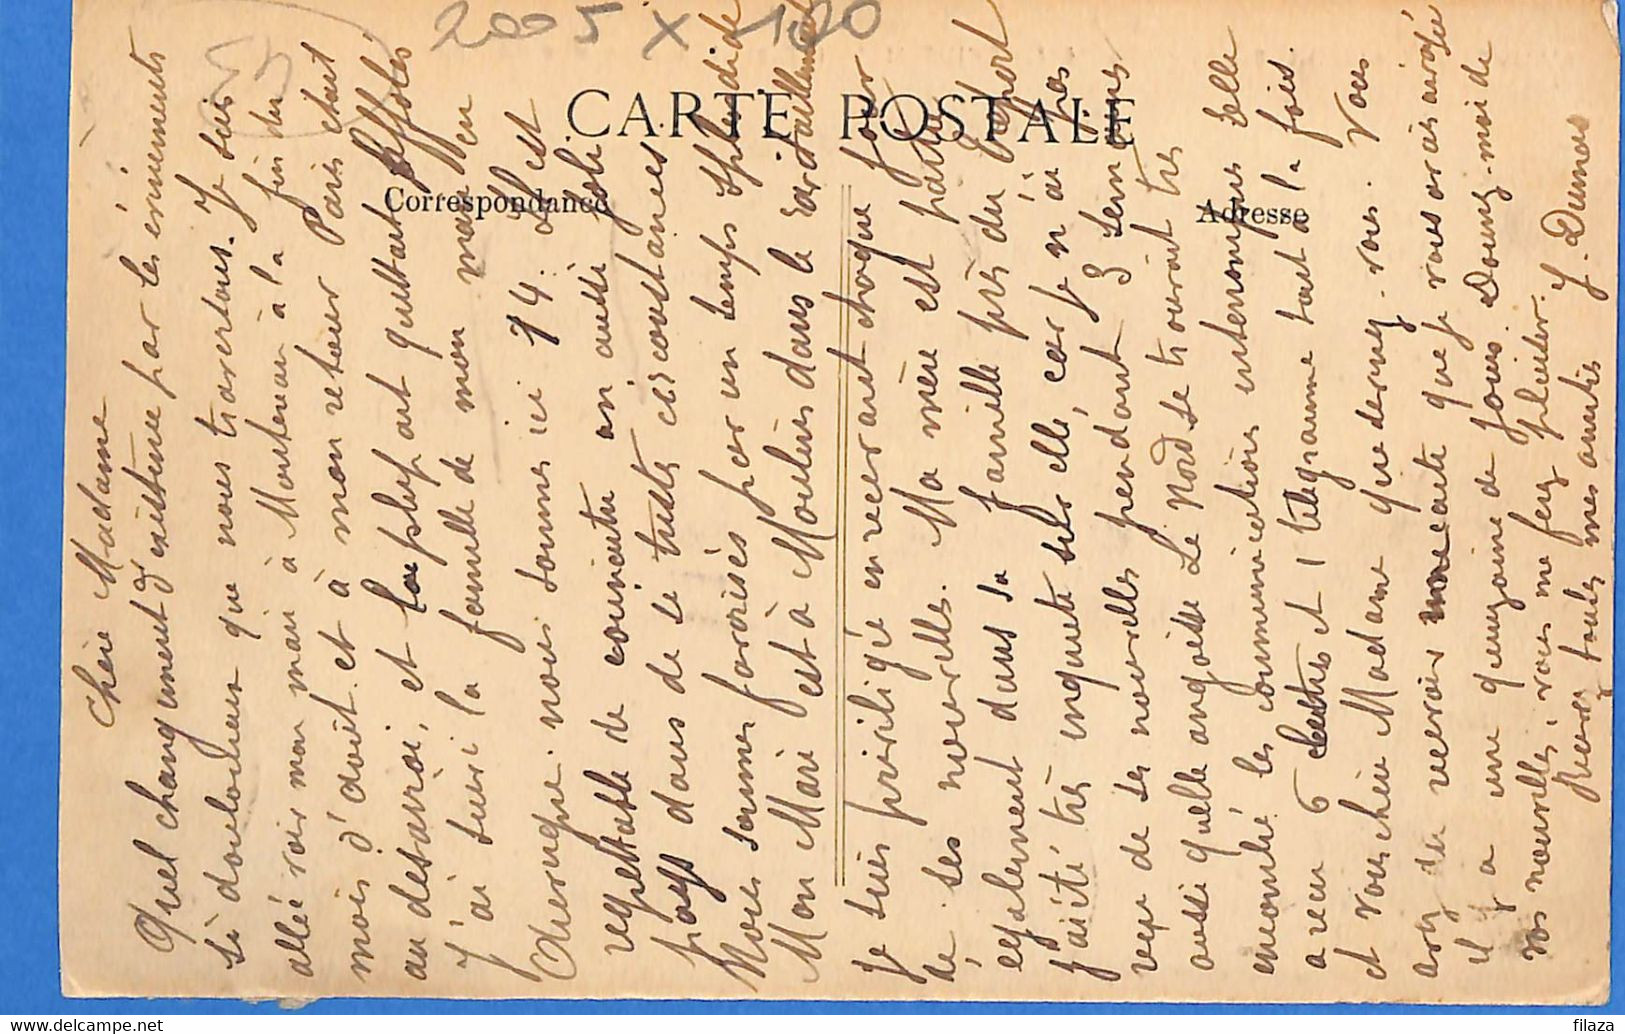 2005 x 100
CARTE POSTALE
Correspondance
Adresse
Chère Madame
Quel changement d'existence par les événements
si douloureux que nous traversons. Je suis
allée voir mon mari à Montereau à la fin du
mois d'août et à mon retour Paris était
au désarroi, et la plupart quittant affolés
J'ai suivi la famille de mon mari en
Auvergne. nous sommes ici 14. Il est
regrettable de connaître un aussi joli
pays dans de si tristes circonstances
Nous sommes favorisés par un temps splendide
Mon Mari est à Moulins dans le ravitaillement
Je suis privilégiée en recevant chaque jour
de ses nouvelles. Ma mère est partie
également dans sa famille près du Tréport
J'ai été très inquiète sur elle, car je n'ai pas
reçu de ses nouvelles pendant 3 semaines
aussi quelle angoisse Le Nord se trouvant très
encombré les communications interrompues elle
a reçu 6 lettres et 1 télégramme tout à la fois.
et vous chère Madame que devenez-vous. Vous
avez du recevoir une carte que je vous avais envoyée
il y a une quinzaine de jours. Donnez-moi de
vos nouvelles, vous me ferez plaisir.
Recevez toutes mes amitiés J. Dumas
filaza
delcampe.net